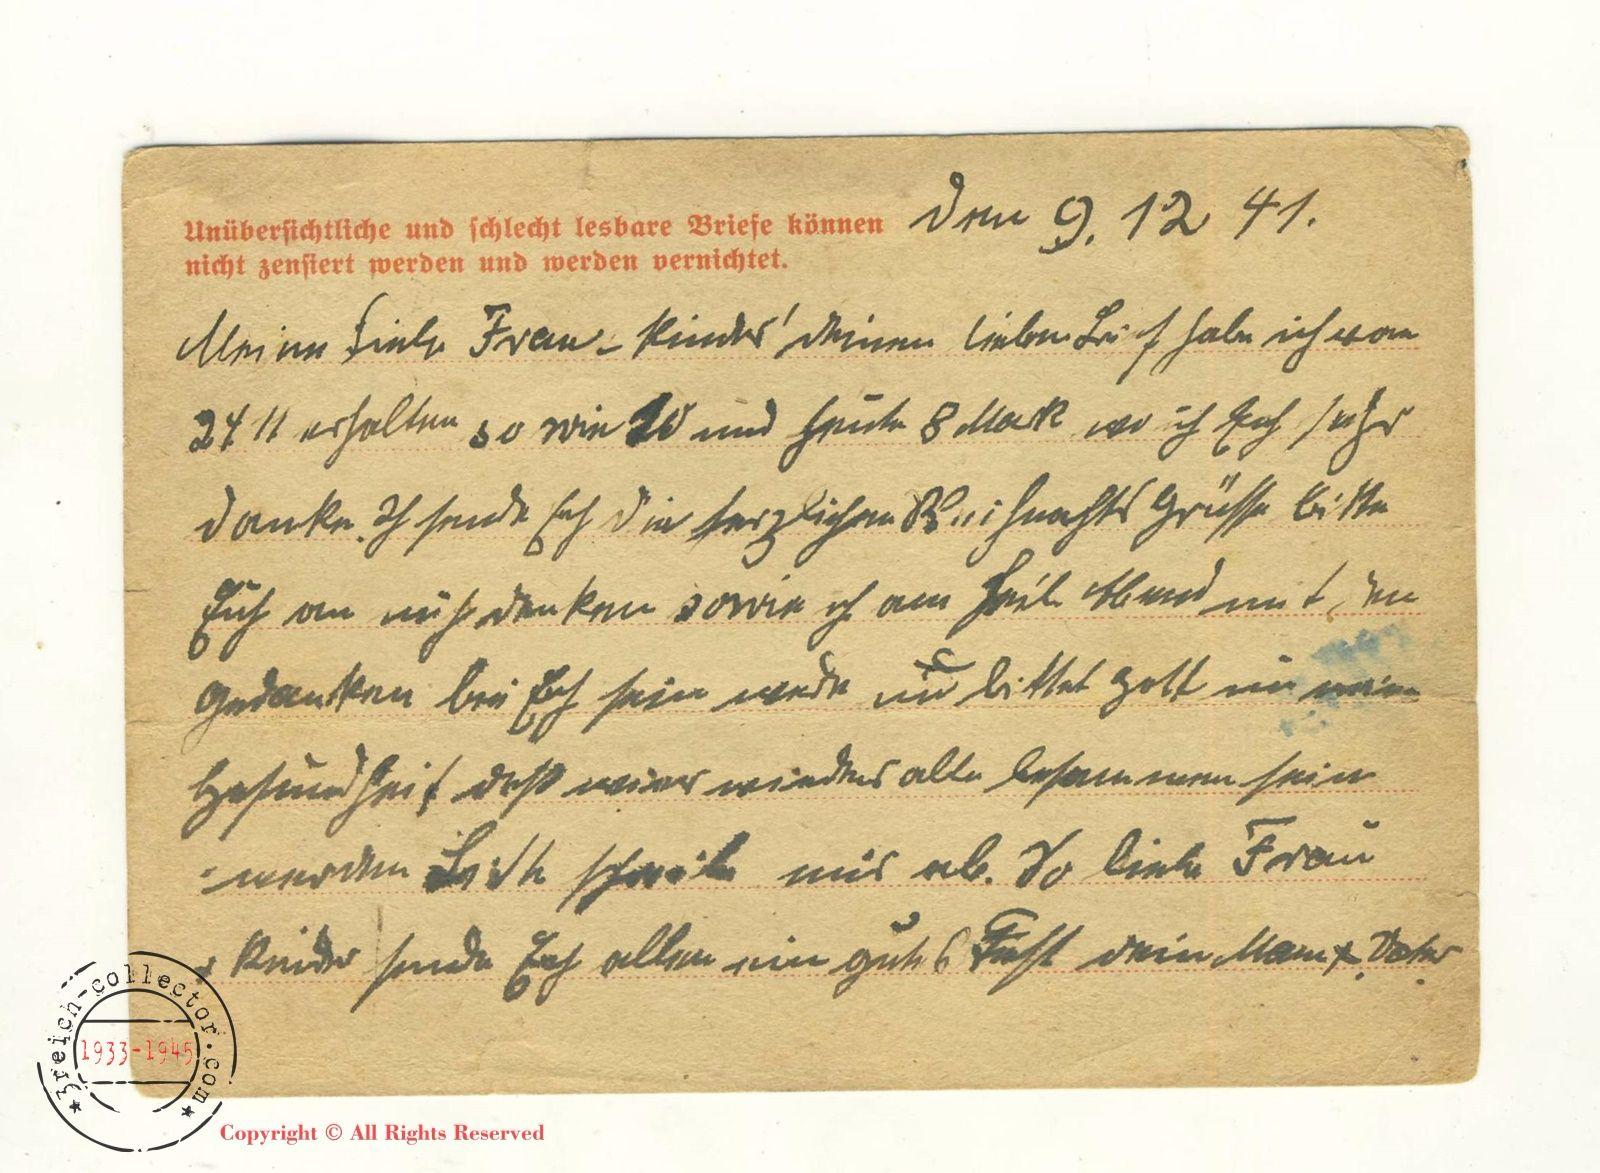 Unübersichtliche und schlecht lesbare Briefe können
nicht zensiert werden und werden vernichtet.
den 9. 12 41.
Meine Liebe Frau - Kinder! deinen lieben Brief habe ich vom
24 11 erhalten so wie 10 und heute 8 Mark wo ich Euch sehr
danke. Ich sende Euch die herzlichen Weihnachts Grüsse bitte
Euch an mich denken sowie ich am Heil. Abend mit den
gedanken bei Euch sein werde und bittet Gott um meine
Gesundheit daß wier wieder alle besammen sein
werden Bitte schreibe mir ab. So liebe Frau
+ Kinder sende Euch allen ein gutes Fest dein Mann + Vater
3reich-collector.com
1933-1945
Copyright © All Rights Reserved